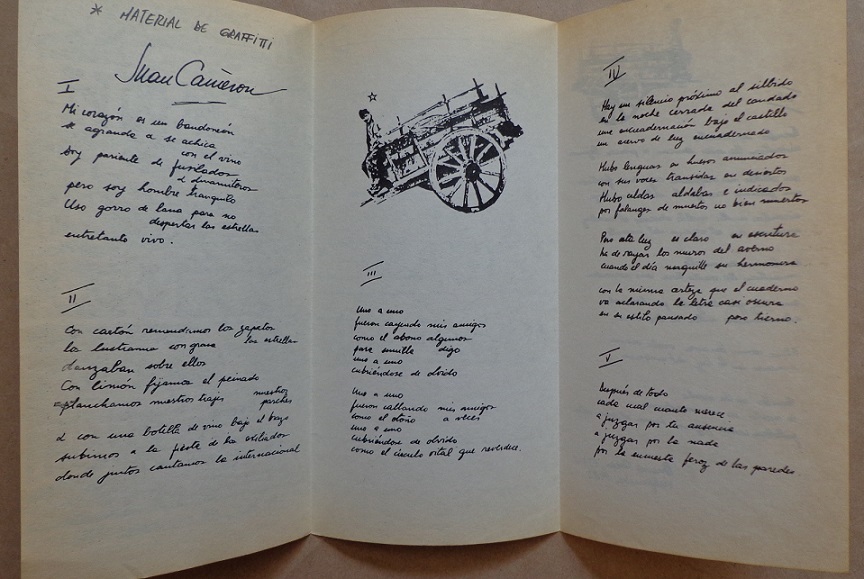 * MATERIAL DE GRAFFITTI
Juan Cameron
I
Mi corazón es un bandoneón
se agranda o se achica
con el vino
Soy pariente de fusilados
i dinamiteros
pero soy hombre tranquilo
Uso gorro de lana para no
despertar las estrellas
entretanto vivo.
II
Con cartón remendimos los zapatos
los lustramos con grasa las estrellas
danzaban sobre ellos
Con limón fijamos el peinado
planchamos nuestros trajes nuestros
parches
i con una botella de vino bajo el brazo
subimos a la fiesta de los
donde juntos cantamos la internacional
III
Uno a uno
fueron cayendo mis amigos
como el abono algunos
para semilla digo
uno a uno
cubriéndose de olvido
Uno a uno
fueron callando mis amigos
como el otoño a veces
uno a uno
cubriéndose de olvido
como el círculo vital que reverdece.
IV
Hay un silencio próximo al silbido
en la noche cerrada del candado
una encuadernación bajo el castillo
un acervo de luz encuadernado
Hubo lenguas en huesos anunciados
con sus voces transidas en desiertos
Hubo celdas aldabas e indicados
por falanges de muertos no bien muertos
Pero esta luz es claro en escritura
ha de rayar los muros del averno
cuando el día su hermosura
con la misma que el cuaderno
va aclarando la letra casi oscura
en su estilo pausado pero tierno.
V
Después de todo
cada cual cuanto merece
a juzgar por tu ausencia
a juzgar por la nada
por la encuesta feroz de las paredes